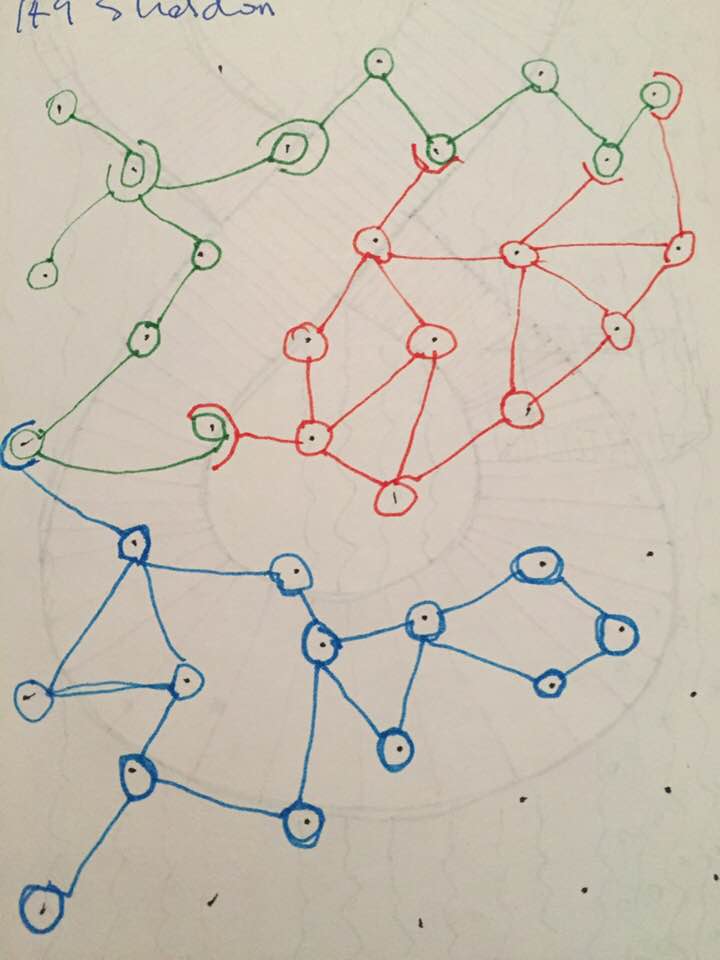 149 Sheldon